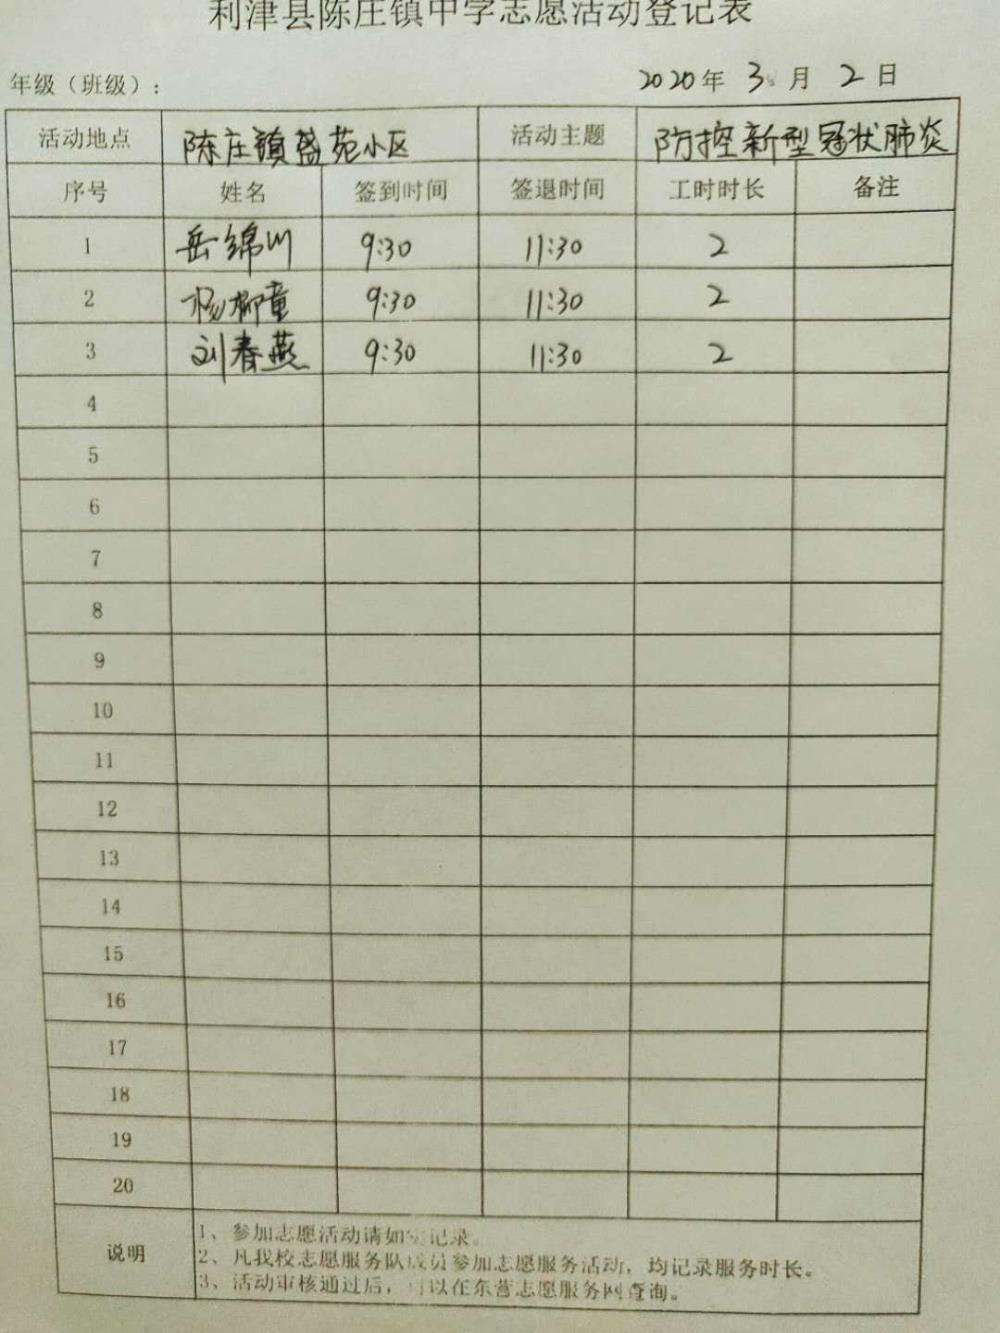 利津县陈庄镇中学志愿活动登记表
年级（班级）： 2020年 3 月 2 日
活动地点 陈庄镇盛苑小区 活动主题 防控新型冠状肺炎
序号 姓名 签到时间 签退时间 工时时长 备注
1 岳绵川 9:30 11:30 2
2 杨柳童 9:30 11:30 2
3 刘春燕 9:30 11:30 2
4
5
6
7
8
9
10
11
12
13
14
15
16
17
18
19
20
说明
1、参加志愿活动请如实记录。
2、凡我校志愿服务队成员参加志愿服务活动，均记录服务时长。
3、活动审核通过后，可以在东营志愿服务网查询。